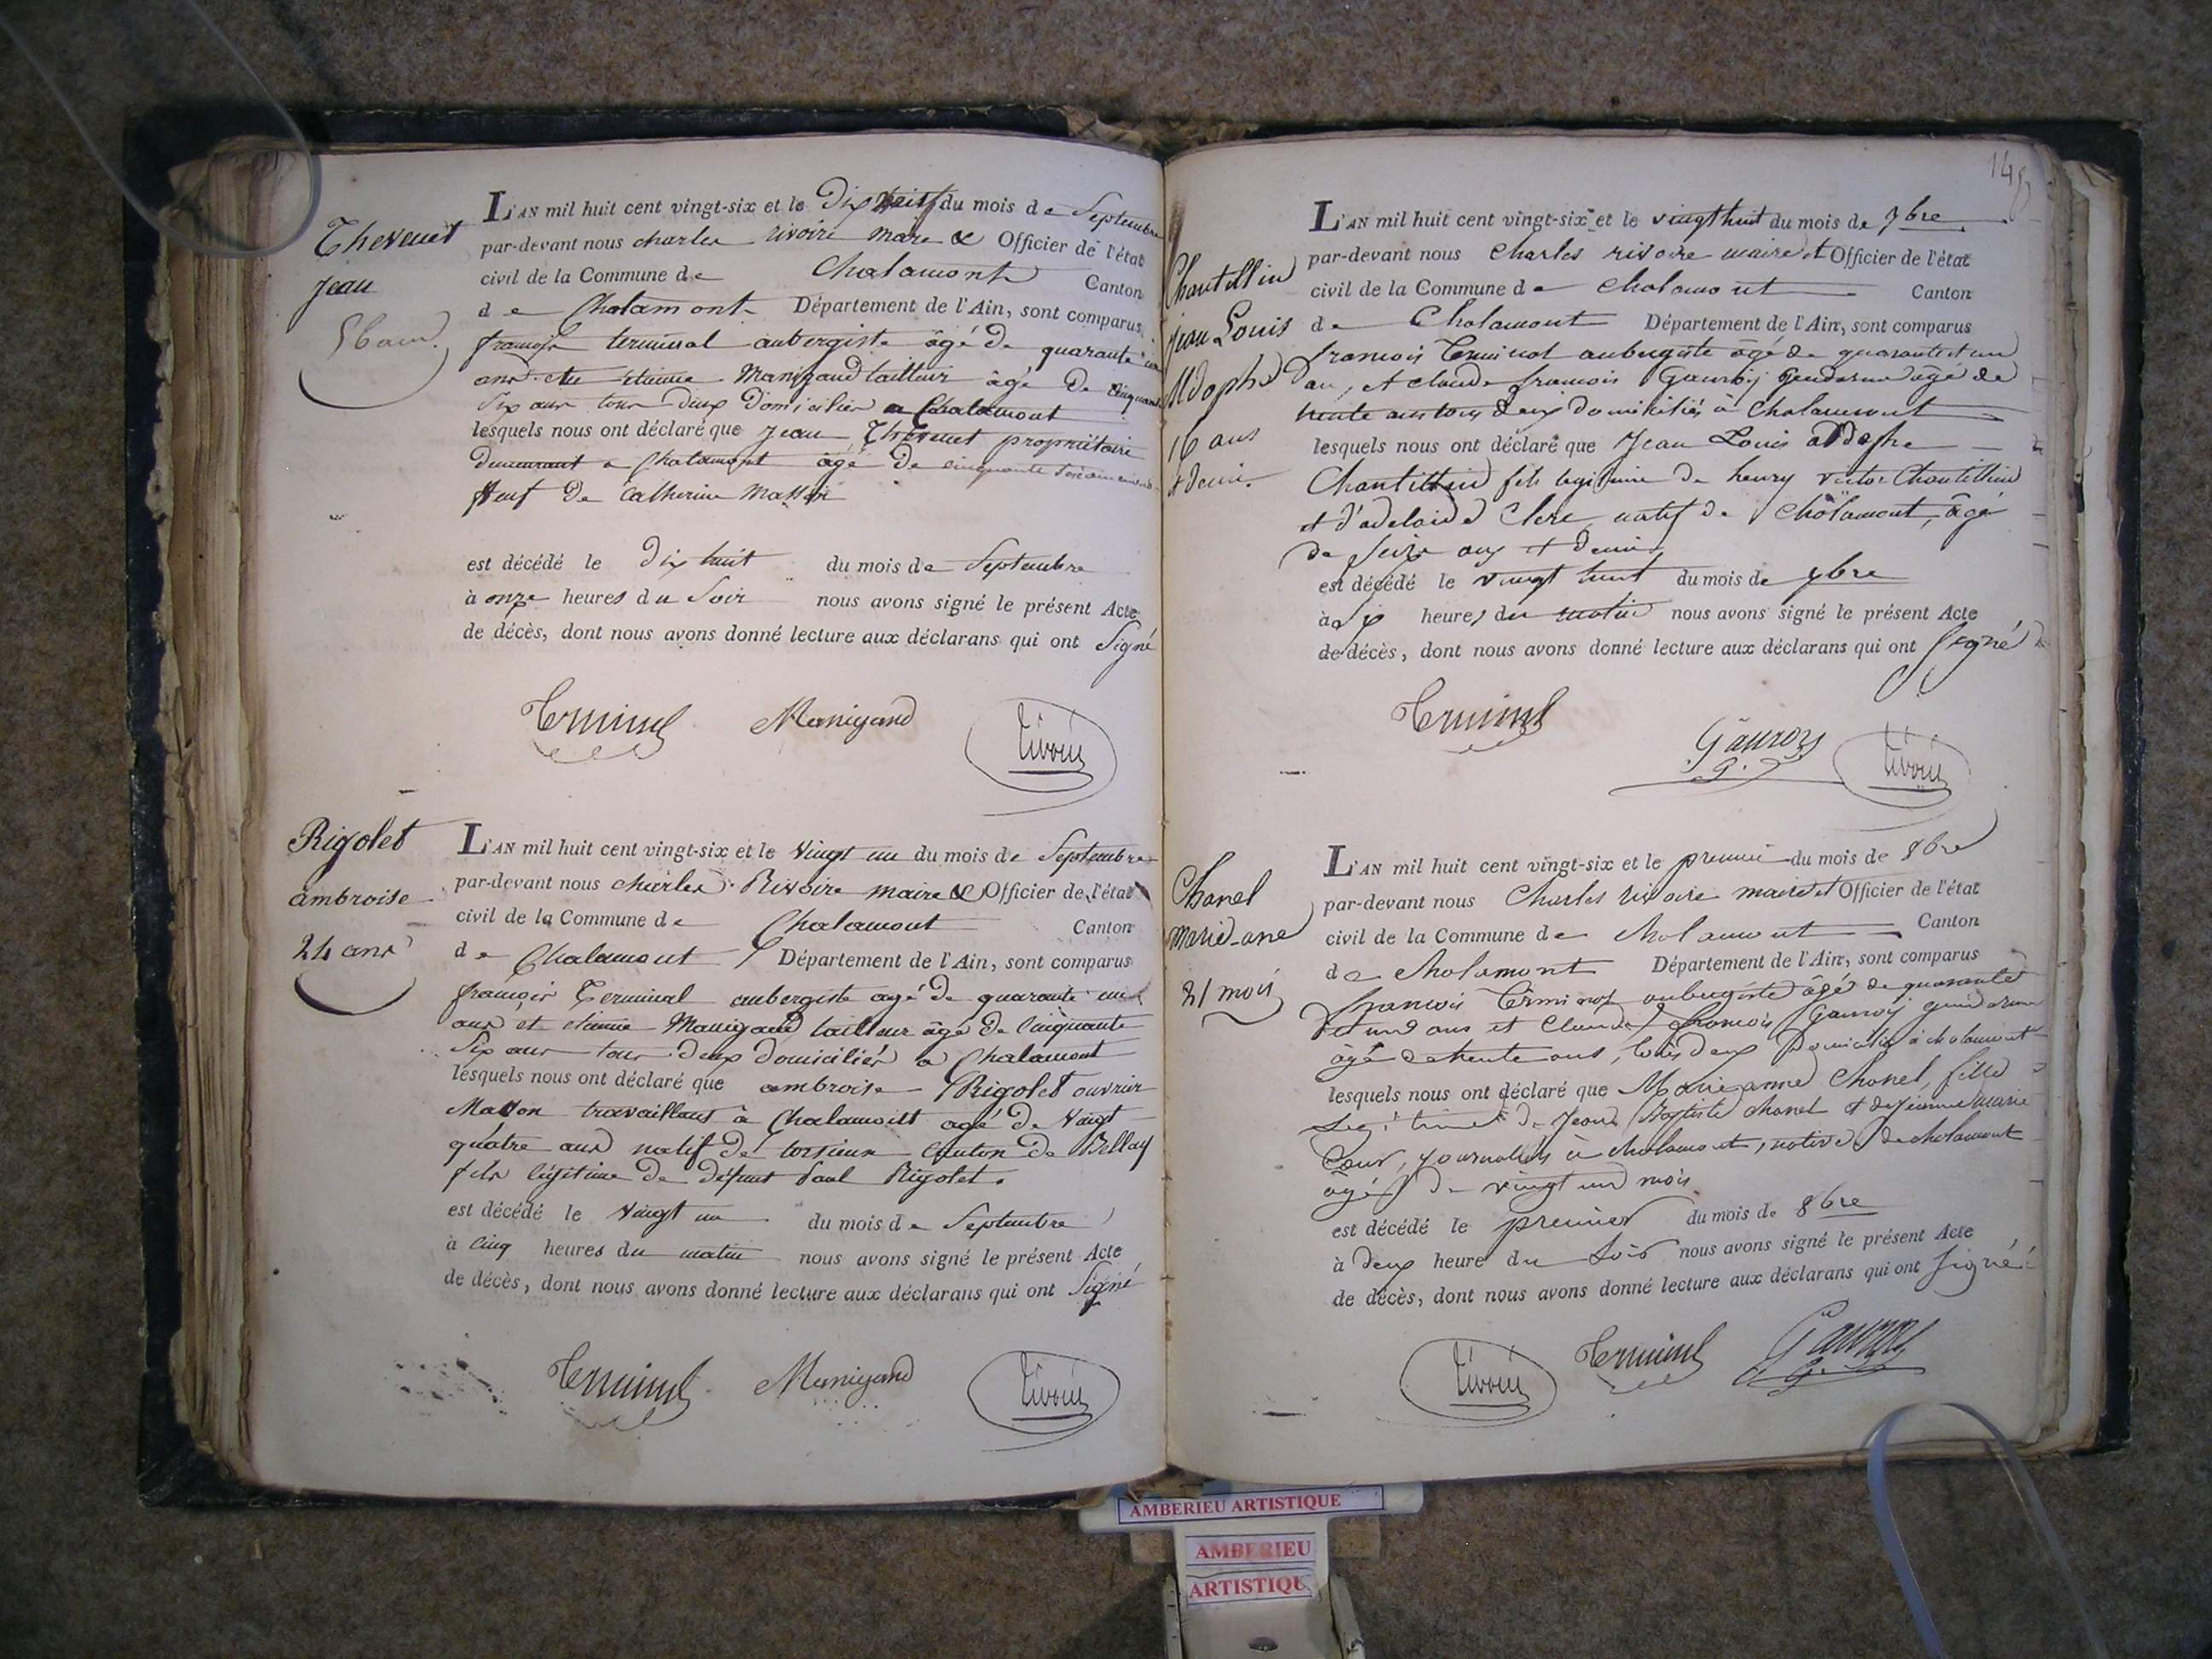 Thevenet
jean
56 ans.
L'AN mil huit cent vingt-six et le Dix neuf du mois de Septembre
par-devant nous charles rivoire mare & Officier de l'état
civil de la Commune de Chalamont Canton
de Chalamont Département de l'Ain, sont comparus
françois terminal aubergiste âgé de quarante un
ans etienne Manigand tailleur âgé De cinquante
Six ans tous deux Domiciliés a Chalamont
lesquels nous ont déclaré que Jean Thevenet propriétaire
Demeurant a Chalamont âgé De cinquante six ans
Veuf De Catherine
est décédé le Dix huit du mois de Septembre
à onze heures du Soir nous avons signé le présent Acte
de décès, dont nous avons donné lecture aux déclarans qui ont Signé
Terminal Manigand Rivoire
Rigolet
ambroise
24 ans
L'AN mil huit cent vingt-six et le Vingt un du mois de Septembre
par-devant nous charles Rivoire maire & Officier de l'état
civil de la Commune de Chalamont Canton
de Chalamont Département de l'Ain, sont comparus
françois Terminal aubergiste agé de quarante un
ans et etienne Manigand tailleur âgé De Cinquante
Six ans tous deux domiciliés a Chalamont
lesquels nous ont déclaré que ambroise Rigolet ouvrier
Maçon travaillant à Chalamont agé De Vaingt
quatre ans natif De Canton De Bellay
fils légitime De défunt Paul Rigolet.
est décédé le Vaingt un du mois de Septembre
à Cinq heures du matin nous avons signé le présent Acte
de décès, dont nous avons donné lecture aux déclarans qui ont Signé
Terminal Manigand Rivoire
Chantillin
jean Louis
Aldophe
16 ans
et demi.
L'AN mil huit cent vingt-six et le vingt huit du mois de 7bre
par-devant nous Charles rivoire maire et Officier de l'état
civil de la Commune de Chalamont Canton
de Chalamont Département de l'Ain, sont comparus
francois Terminal aubergiste âgé de quarante et un
an, et claude francois Gauroy gendarme âgé de
trente ans tous deux domiciliés à Chalamont
lesquels nous ont déclaré que Jean Louis aldophe
Chantillin fils legitime de henry victor Chantillin
et d'adelaide Clerc natif de Chalamont, âgé
de seize ans et demi
est décédé le vingt huit du mois de 7bre
à six heures du matin nous avons signé le présent Acte
de décès, dont nous avons donné lecture aux déclarans qui ont Signé
Terminal Gauroy Rivoire
Chanel
marie-ane
21 mois
L'AN mil huit cent vingt-six et le premier du mois de 8bre
par-devant nous Charles rivoire maire et Officier de l'état
civil de la Commune de Chalamont Canton
de Chalamont Département de l'Ain, sont comparus
francois Terminal aubergiste âgé de quarante
et un ans et Claude francois Gauroy gendarme
âgé de trente ans, tous deux Domiciliés à chalamont
lesquels nous ont déclaré que Marie anne Chanel, fille
Legitime de Jean Baptiste chanel et de jeanne marie
journaliers à chalamont, native de chalamont
âgé de vingt un mois
est décédé le premier du mois de 8bre
à deux heure du Soir nous avons signé le présent Acte
de décès, dont nous avons donné lecture aux déclarans qui ont signé
Rivoire Terminal Gauroy
AMBERIEU ARTISTIQUE
AMBERIEU
ARTISTIQU